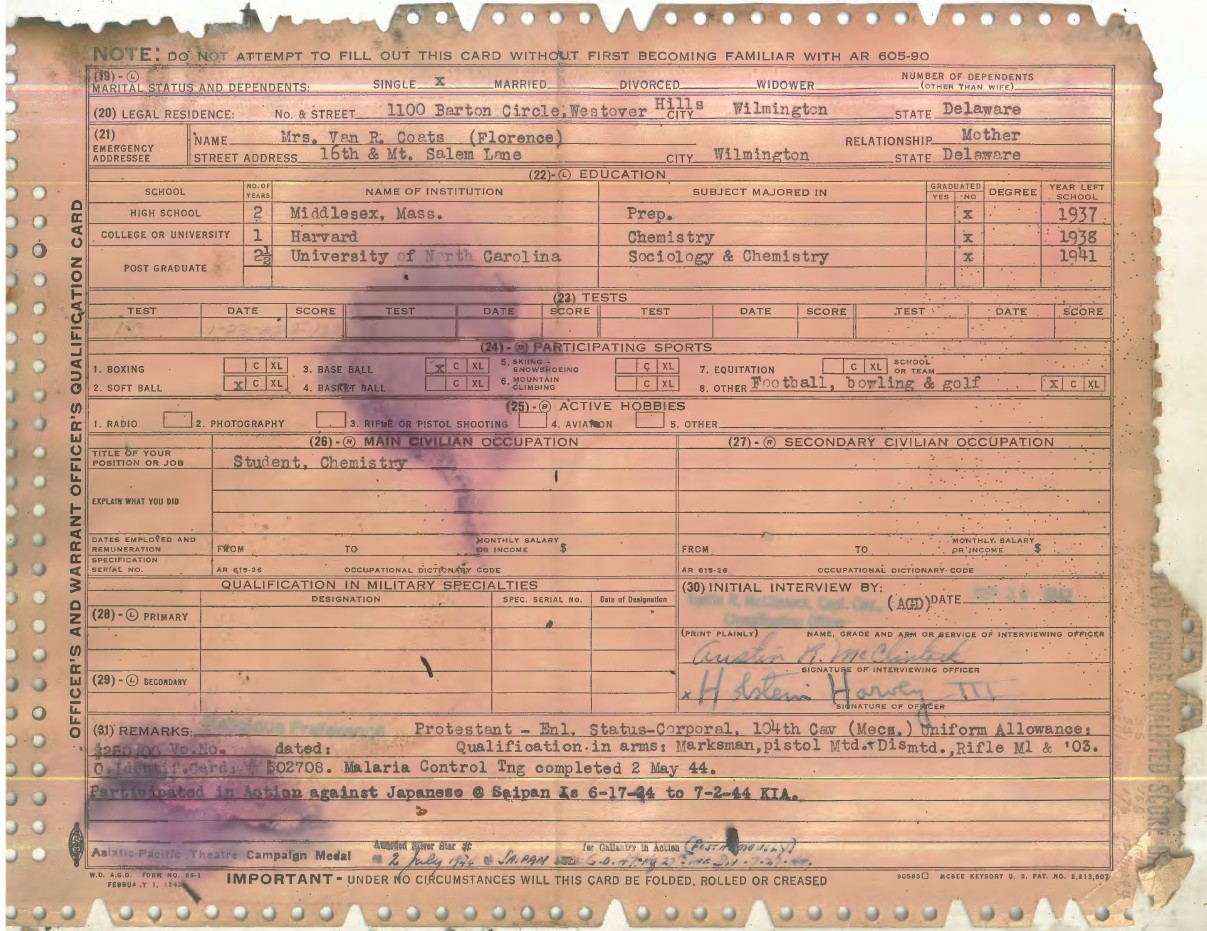 NOTE: DO NOT ATTEMPT TO FILL OUT THIS CARD WITHOUT FIRST BECOMING FAMILIAR WITH AR 605-90
OFFICER'S AND WARRANT OFFICER'S QUALIFICATION CARD
(19)-(L) MARITAL STATUS AND DEPENDENTS: SINGLE x MARRIED DIVORCED WIDOWER NUMBER OF DEPENDENTS (OTHER THAN WIFE)
(20) LEGAL RESIDENCE: No. & STREET 1100 Barton Circle, Westover Hills CITY Wilmington STATE Delaware
(21) EMERGENCY ADDRESSEE NAME Mrs. Van R. Coats (Florence) RELATIONSHIP Mother
STREET ADDRESS 16th & Mt. Salem Lane CITY Wilmington STATE Delaware
(22)-(L) EDUCATION
SCHOOL NO. OF YEARS NAME OF INSTITUTION SUBJECT MAJORED IN GRADUATED YES NO DEGREE YEAR LEFT SCHOOL
HIGH SCHOOL 2 Middlesex, Mass. Prep. x 1937
COLLEGE OR UNIVERSITY 1 Harvard Chemistry x 1938
2½ University of North Carolina Sociology & Chemistry x 1941
POST GRADUATE
(23) TESTS
TEST DATE SCORE TEST DATE SCORE TEST DATE SCORE TEST DATE SCORE
(24)-(R) PARTICIPATING SPORTS
1. BOXING C XL 3. BASE BALL x C XL 5. SKIING - SNOWSHOEING C XL 7. EQUITATION C XL SCHOOL OR TEAM
2. SOFT BALL x C XL 4. BASKET BALL C XL 6. MOUNTAIN CLIMBING C XL 8. OTHER Football, bowling & golf x C XL
(25)-(R) ACTIVE HOBBIES
1. RADIO 2. PHOTOGRAPHY 3. RIFLE OR PISTOL SHOOTING 4. AVIATION 5. OTHER
(26)-(R) MAIN CIVILIAN OCCUPATION (27)-(R) SECONDARY CIVILIAN OCCUPATION
TITLE OF YOUR POSITION OR JOB Student, Chemistry
EXPLAIN WHAT YOU DID
DATES EMPLOYED AND REMUNERATION FROM TO MONTHLY SALARY OR INCOME $ FROM TO MONTHLY SALARY OR INCOME $
SPECIFICATION SERIAL NO. AR 615-26 OCCUPATIONAL DICTIONARY CODE AR 615-26 OCCUPATIONAL DICTIONARY CODE
QUALIFICATION IN MILITARY SPECIALTIES
DESIGNATION SPEC. SERIAL NO. Date of Designation
(30) INITIAL INTERVIEW BY:
(AGD) DATE
(28)-(L) PRIMARY
(PRINT PLAINLY) NAME, GRADE AND ARM OR SERVICE OF INTERVIEWING OFFICER
Austin R. McClintock
SIGNATURE OF INTERVIEWING OFFICER
(29)-(L) SECONDARY
x Holstein Harvey III
SIGNATURE OF OFFICER
(31) REMARKS: Protestant - Enl. Status-Corporal, 104th Cav (Mecs.) Uniform Allowance:
$250.00 Vo.No. dated: Qualification in arms: Marksman, pistol Mtd. & Dismtd., Rifle M1 & '03.
O.Identif.Card: # 502708. Malaria Control Tng completed 2 May 44.
Participated in Action against Japanese @ Saipan Is 6-17-24 to 7-2-44 KIA.
Asiatic-Pacific Theatre Campaign Medal
Awarded Silver Star for Gallantry in Action (POSTHUMOUSLY)
2 July 1944 @ SAIPAN
W.D. A.G.O. FORM NO. 66-1
FEBRUARY 1, 1942
IMPORTANT - UNDER NO CIRCUMSTANCES WILL THIS CARD BE FOLDED, ROLLED OR CREASED
MCBEE KEYSORT U. S. PAT. NO. 2,213,607